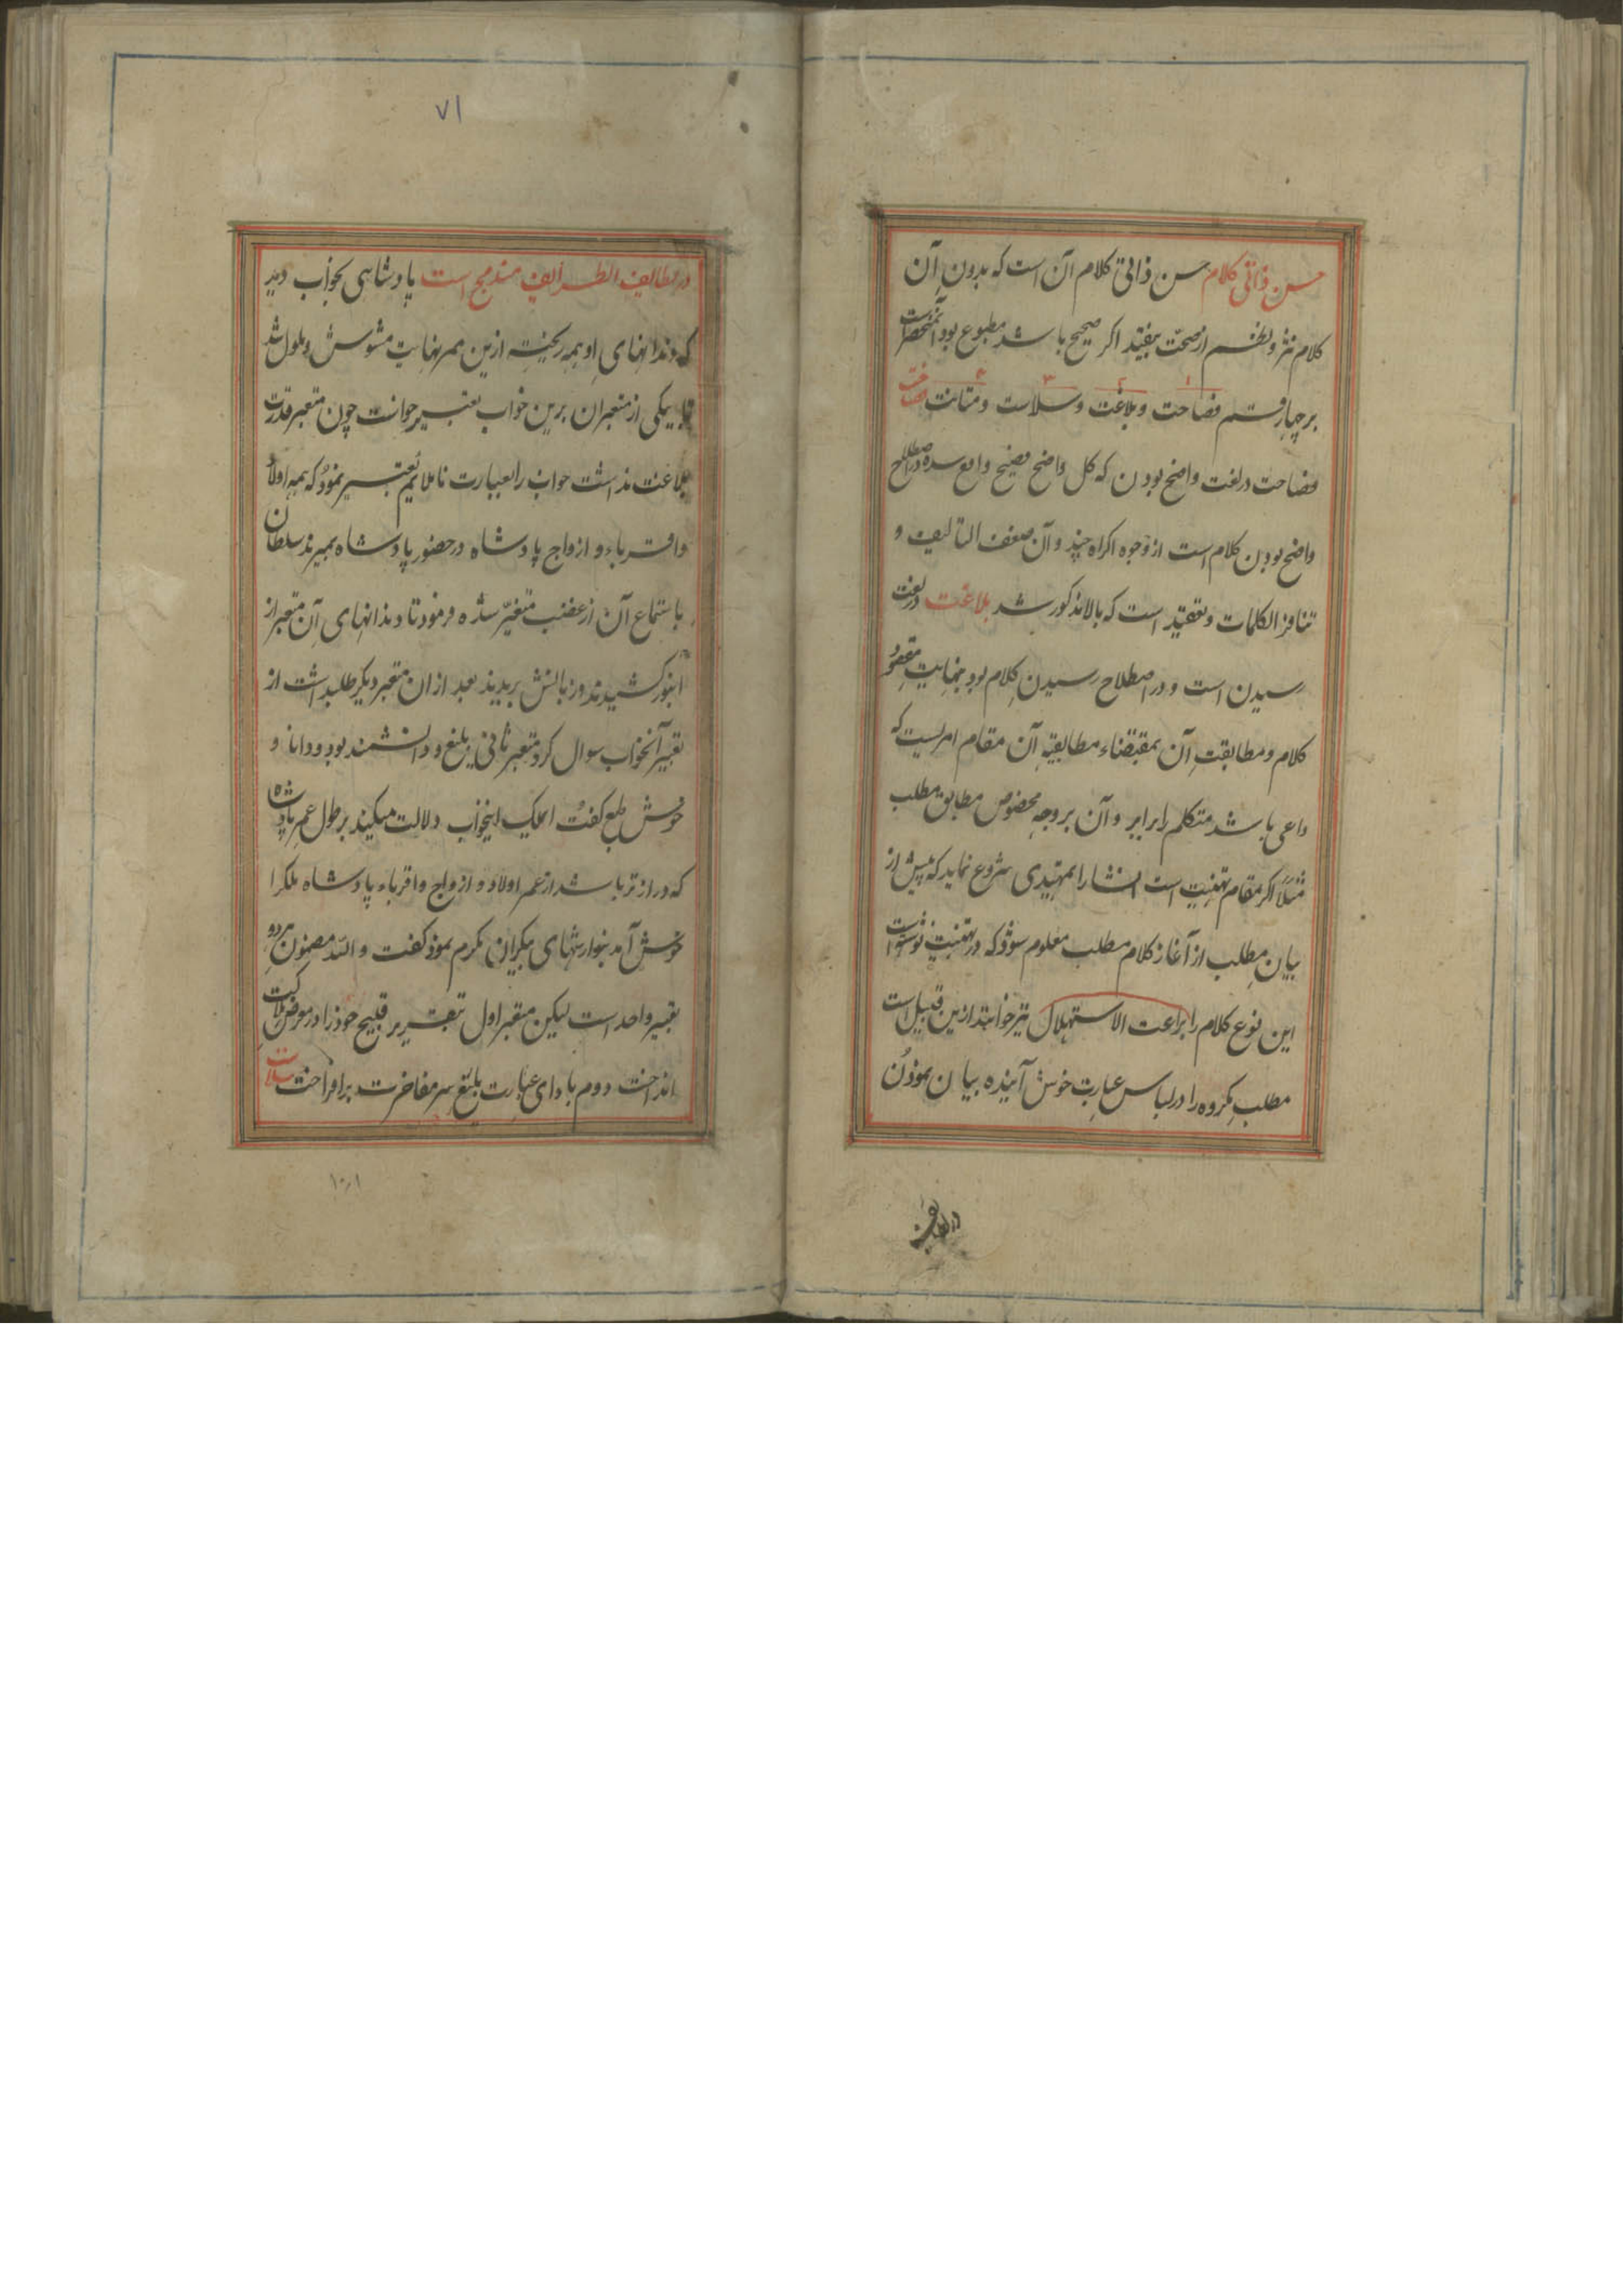 حسن ذاتی کلام حسن ذاتی کلام آن است که بدون آن
کلام نثر و نظم از صحت بیفتد اکر صحیح باشد مطبوع بود آن منحصر است
بر چهار قسم فصاحت و بلاغت و سلاست و متانت فصاحت
فصاحت در لغت واضح بودن که کل واضح فصیح واقع شده در اصطلاح
واضح بودن کلام است از وجوه اکراه چند و آن ضعف التالیف و
تنافر الکلمات و تعقید است که بالا مذکور شد بلاغت در لغت
رسیدن است و در اصطلاح رسیدن کلام بود بنهایت مقصود
کلام و مطابقت آن بمقتضاء مطابقه آن مقام امریست که
داعی باشد متکلم را برابر و آن بر وجه مخصوص مطابق مطلب
مثلاً اکر مقام تهنیت است انشا را بتمهیدی شروع نماید که پیش از
بیان مطلب از آغاز کلام مطلب معلوم شود که در تهنیت نوشته است
این نوع کلام را براعت الاستهلال نیز خوانند ازین قبیل است
مطلب مکروه را در لباس عبارت خوش آینده بیان نمودن
در لطایف
۷۱
در لطایف الطرایف مندمج است پادشاهی بخواب دید
که دندانهای او همه ریخته ازین ممر نهایت مشوش و ملول شد
تا یکی از معبران برین خواب تعبیر خواست چون معبر قدرت
بلاغت نداشت خواب را بعبارت ناملائم تعبیر نمود که همه اولاد
و اقرباء و ازواج پادشاه در حضور پادشاه بمیرند سلطان
باستماع آن از غضب متغیر شده فرمود تا دندانهای آن معبر از
انبور کشیدند و زبانش بریدند بعد ازان معبر دیکر طلبداشت از
تعبیر آنخواب سوال کرد معبر ثانی بلیغ و دانشمند بود و دانا و
خوش طبع کفت اینخواب دلالت میکند بر طول عمر پادشاه
که دراز تر باشد از عمر اولاد و ازواج و اقرباء پادشاه ملک را
خوش آمد بنوازشهای بیکران مکرم نمود کفت و الله مضمون هر دو
تعبیر واحد است لیکن معبر اول بتقریر قبیح خود را در معرض هلاکت
انداخت دوم بادای عبارت بلیغ سر مفاخرت برافراخت سلاست